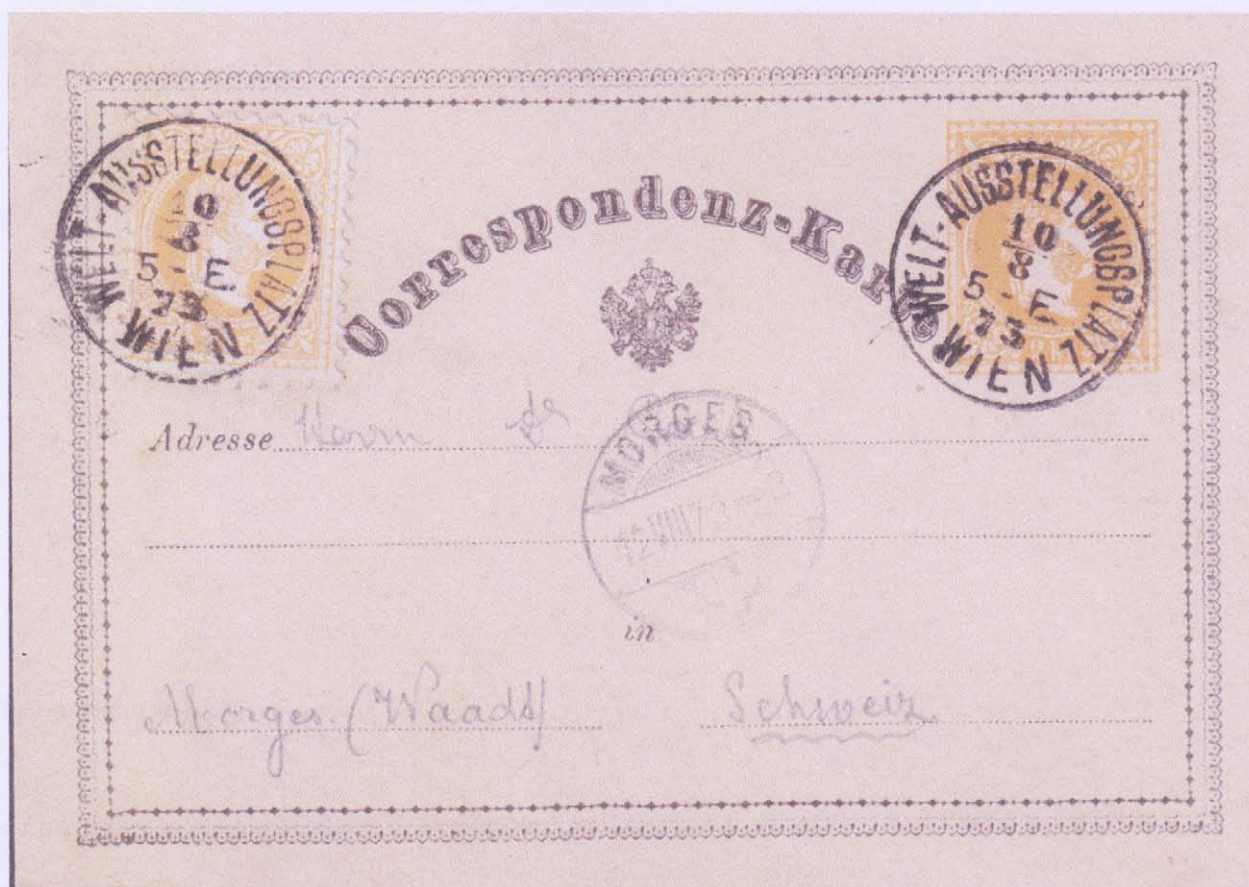 WELT-AUSSTELLUNGSPLATZ
10
8
5 - E
73
WIEN
Correspondenz-Karte
WELT-AUSSTELLUNGSPLATZ
10
8
5 - E
73
WIEN
Adresse Herrn
MORGES
12 VIII 73
in
Morges (Waadt) Schweiz